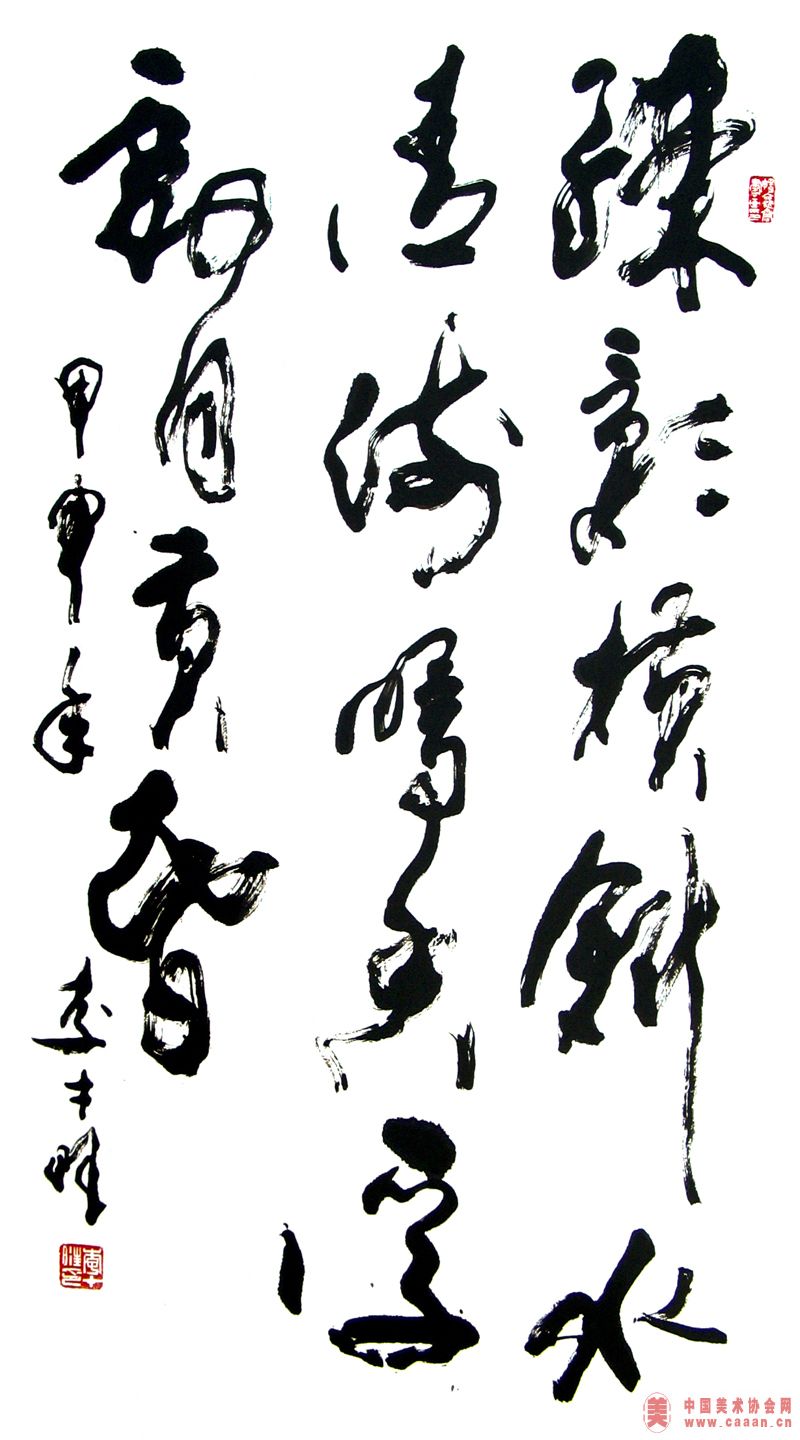 疎影横斜水
清淺暗香浮
動月黄昏
甲申年 李士
中国美术协会网
www.caaan.cn